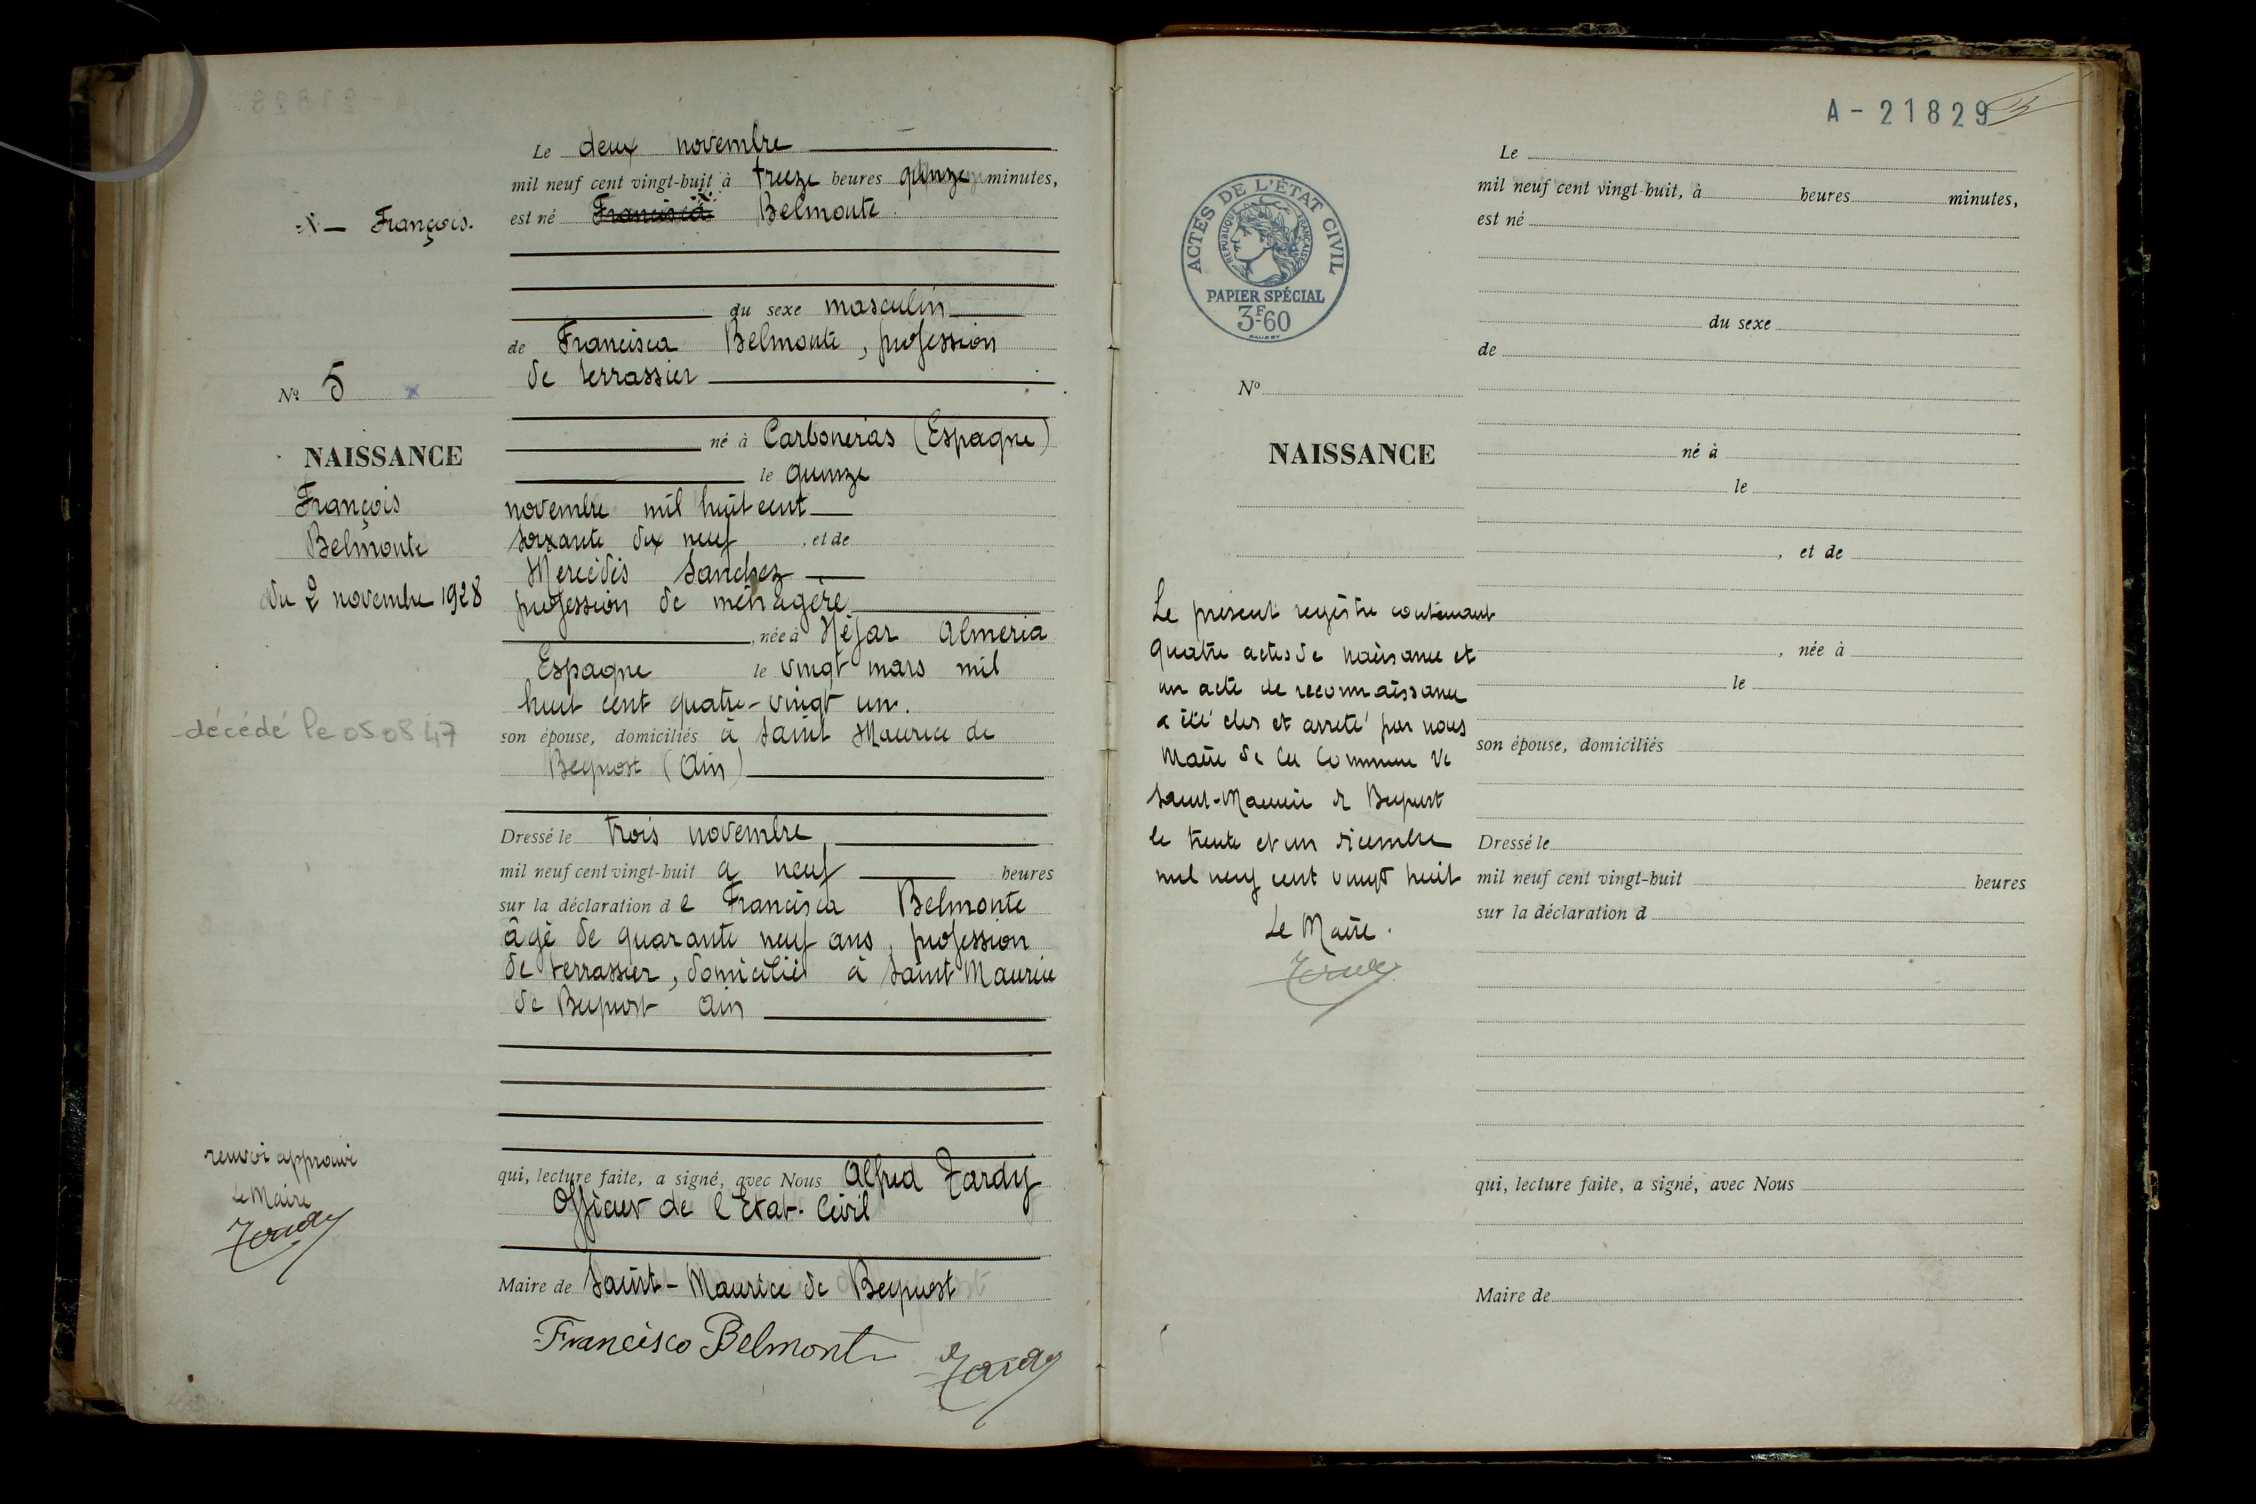 Le deux novembre
mil neuf cent vingt-huit à treize heures quinze minutes,
X — François.
est né Francisca X Belmonte
du sexe masculin
de Francisca Belmonte, profession
de terrassier
Nº 5 x
né à Carboneras (Espagne)
NAISSANCE
le quinze
François
novembre mil huit cent
Belmonte
soixante dix neuf, et de
Mercédès Sanchez
du 2 novembre 1928
profession de ménagère
, née à Néjar Almeria
Espagne le vingt mars mil
huit cent quatre-vingt un.
décédé le 05 08 47
son épouse, domiciliés à Saint Maurice de
Beynost (Ain)
Dressé le trois novembre,
mil neuf cent vingt-huit à neuf heures
sur la déclaration de Francisca Belmonte
âgé de quarante neuf ans, profession
de terrassier, domicilié à Saint Maurice
de Beynost Ain
renvoi approuvé
le Maire
Tardy
qui, lecture faite, a signé, avec Nous Alfred Tardy
Officier de l'Etat-Civil
Maire de Saint-Maurice de Beynost
Francisco Belmonte
Tardy
A-21829
ACTES DE L'ÉTAT CIVIL
RÉPUBLIQUE FRANÇAISE
PAPIER SPÉCIAL
3F60
Le
mil neuf cent vingt-huit, à heures minutes,
est né
du sexe
de
Nº
NAISSANCE
né à
le
, et de
Le présent registre contenant
quatre actes de naissance et
un acte de reconnaissance
a été clos et arrêté par nous
Maire de la Commune de
Saint-Maurice de Beynost
le trente et un décembre
mil neuf cent vingt huit
Le Maire.
Tardy
, née à
le
son épouse, domiciliés
Dressé le
mil neuf cent vingt-huit heures
sur la déclaration d
qui, lecture faite, a signé, avec Nous
Maire de